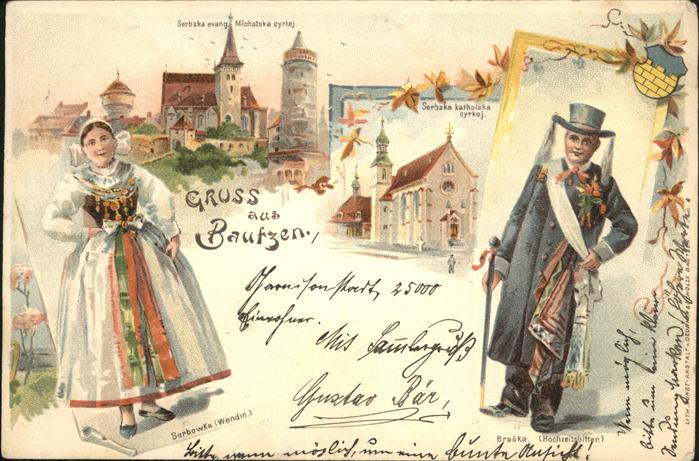 Serbska evang. Michalska cyrkej.
Serbska katholska
cyrkej.
GRUSS
aus
Bautzen.
Garnisonstadt, 25000
Einwohner.
Mit Sammlergruß
Gustav Bär,
Serbowka. (Wendin.)
Braška. (Hochzeitsbitter.)
bitte, wenn möglich, um eine bunte Ansicht.
Wenn möglich,
bitte um eine
LITH. KUNSTANSTALT